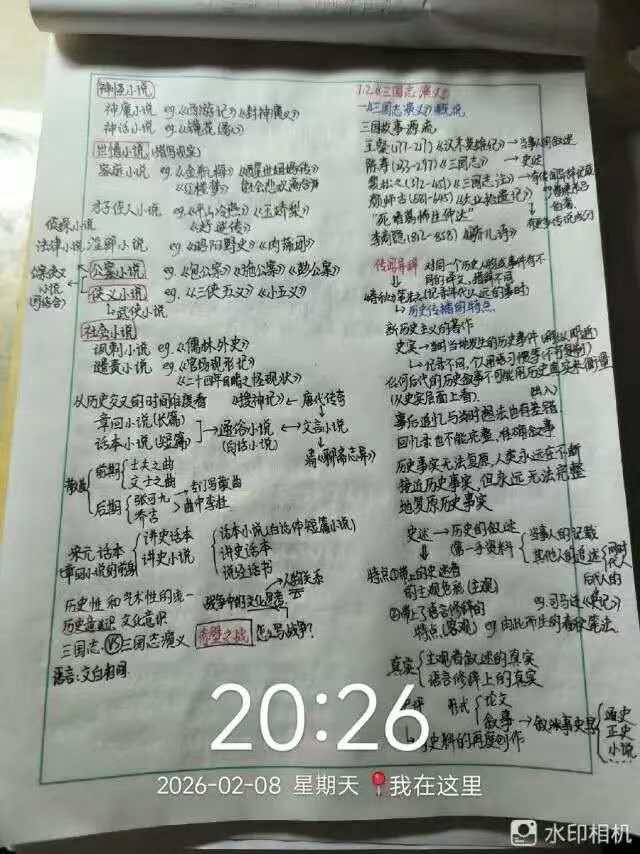 神怪小说
神魔小说 eg.《西游记》《封神演义》
神话小说 eg.《镜花缘》
世情小说(描写现实)
家庭小说 eg.《金瓶梅》《醒世姻缘传》
《红楼梦》 悲欢离合
才子佳人小说 eg.《平山冷燕》《玉娇梨》
《好逑传》
淫邪小说 eg.《昭阳野史》《肉蒲团》
侦探小说
法律小说
公案小说 eg.《包公案》《施公案》《彭公案》
侠义小说 eg.《三侠五义》《小五义》
武侠小说
社会小说
讽刺小说 eg.《儒林外史》
谴责小说 eg.《官场现形记》
《二十年目睹之怪现状》
从历史交叉的时间维度看 《搜神记》← 唐代传奇
章回小说(长篇)
话本小说(短篇)
→通俗小说 ↔ 文言小说
(白话小说)
清《聊斋志异》
散曲
前期 士夫之曲
文士之曲
后期 张可九
乔吉
→专门写散曲
曲中李杜
宋元话本
讲史话本
讲史小说
话本小说(白话体短篇小说)
讲史话本
说经话书
历史性和艺术性的统一
历史意识 文化意识
战争中的文化思考
人的关系
三国志 VS 三国志演义
赤壁之战 怎么写战争?
语言:文白相间
1.2《三国志演义》
一、《三国志演义》概说
三国故事源流
王粲(177-217)《汉末英雄记》→当事人叙述
陈寿(233-297)《三国志》→史述
裴松之(372-451)《三国志注》
颜师古(581-645)《大业拾遗记》
"死诸葛怖生仲达"
李商隐(812-858)《骄儿诗》
传闻异辞 对同一个历史人物或事件有不
同的释义,措辞不同
春秋笔法(记录年代久远的事时)
历史传播的特点
新历史主义的著作
史实→当时当地发生的历史事件
记录不同,饮用练习惯等(不可复制)
任何后代的历史叙事不可能用历史真实来衡量
(从史实层面上看)
事后追忆与当时想法也有差错
出入
回忆录也不能完整、准确叙事
历史事实无法复原,人类永远在不断
接近历史事实,但永远无法完整
地复原历史事实
史述→历史的叙述
(第一手资料
当事人的记载
其他人的追述
同时代人
后代人的
特点:①带上的史述者
的主观色彩(主观)
eg.司马迁《史记》
②带上了语言修辞的
特点(客观) eg.由此而生的春秋笔法
真实
主观者叙述的真实
语言修辞上的真实
形式
论文
叙事→叙述事史
通史
正史
小说
史料的再度创作
20:26
2026-02-08 星期天 我在这里
水印相机